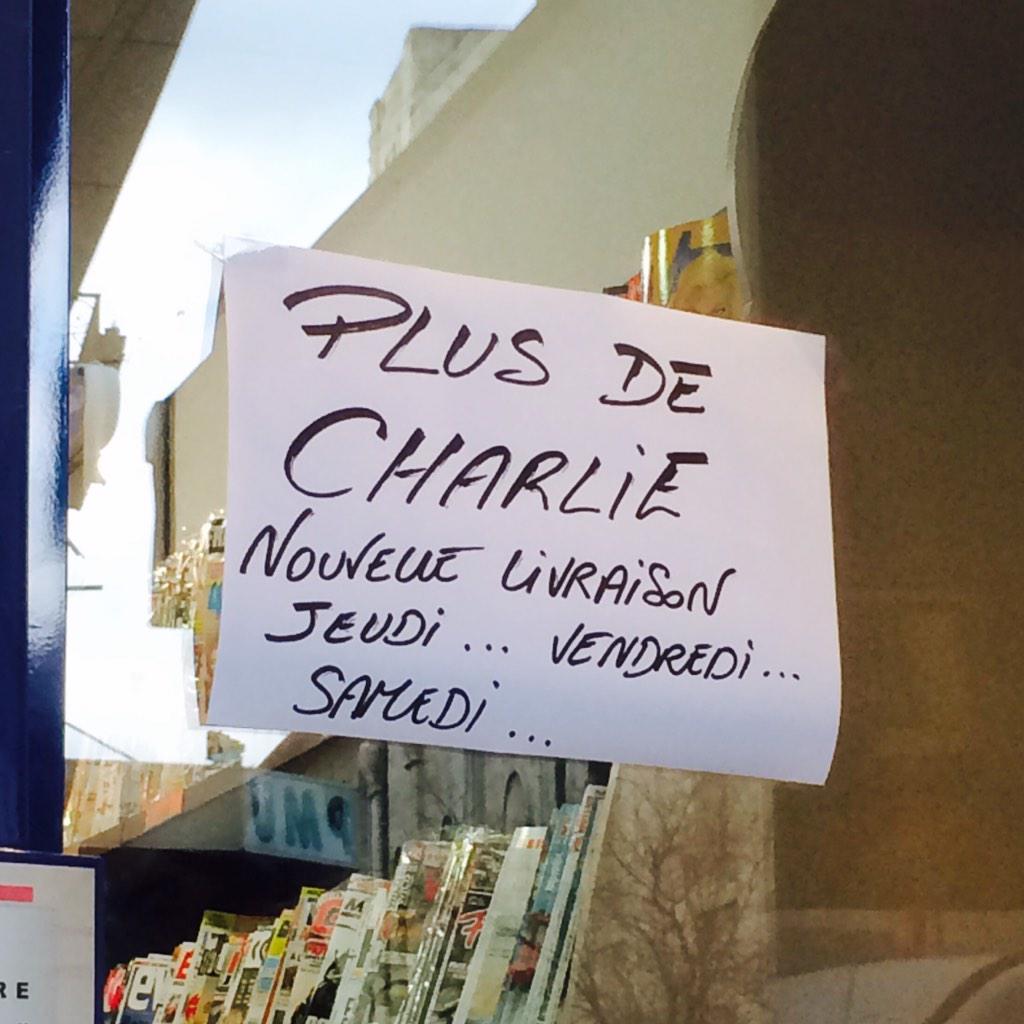 PLUS DE
CHARLiE
NOUVELLE LiVRAiSON
JEUDi... VENDREDi...
SAMEDi...
PMU
RE